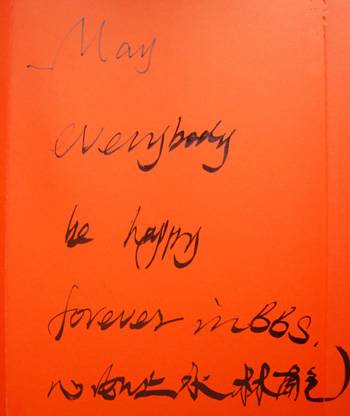 May
everybody
be happy
forever in BBS.
心如止水 林